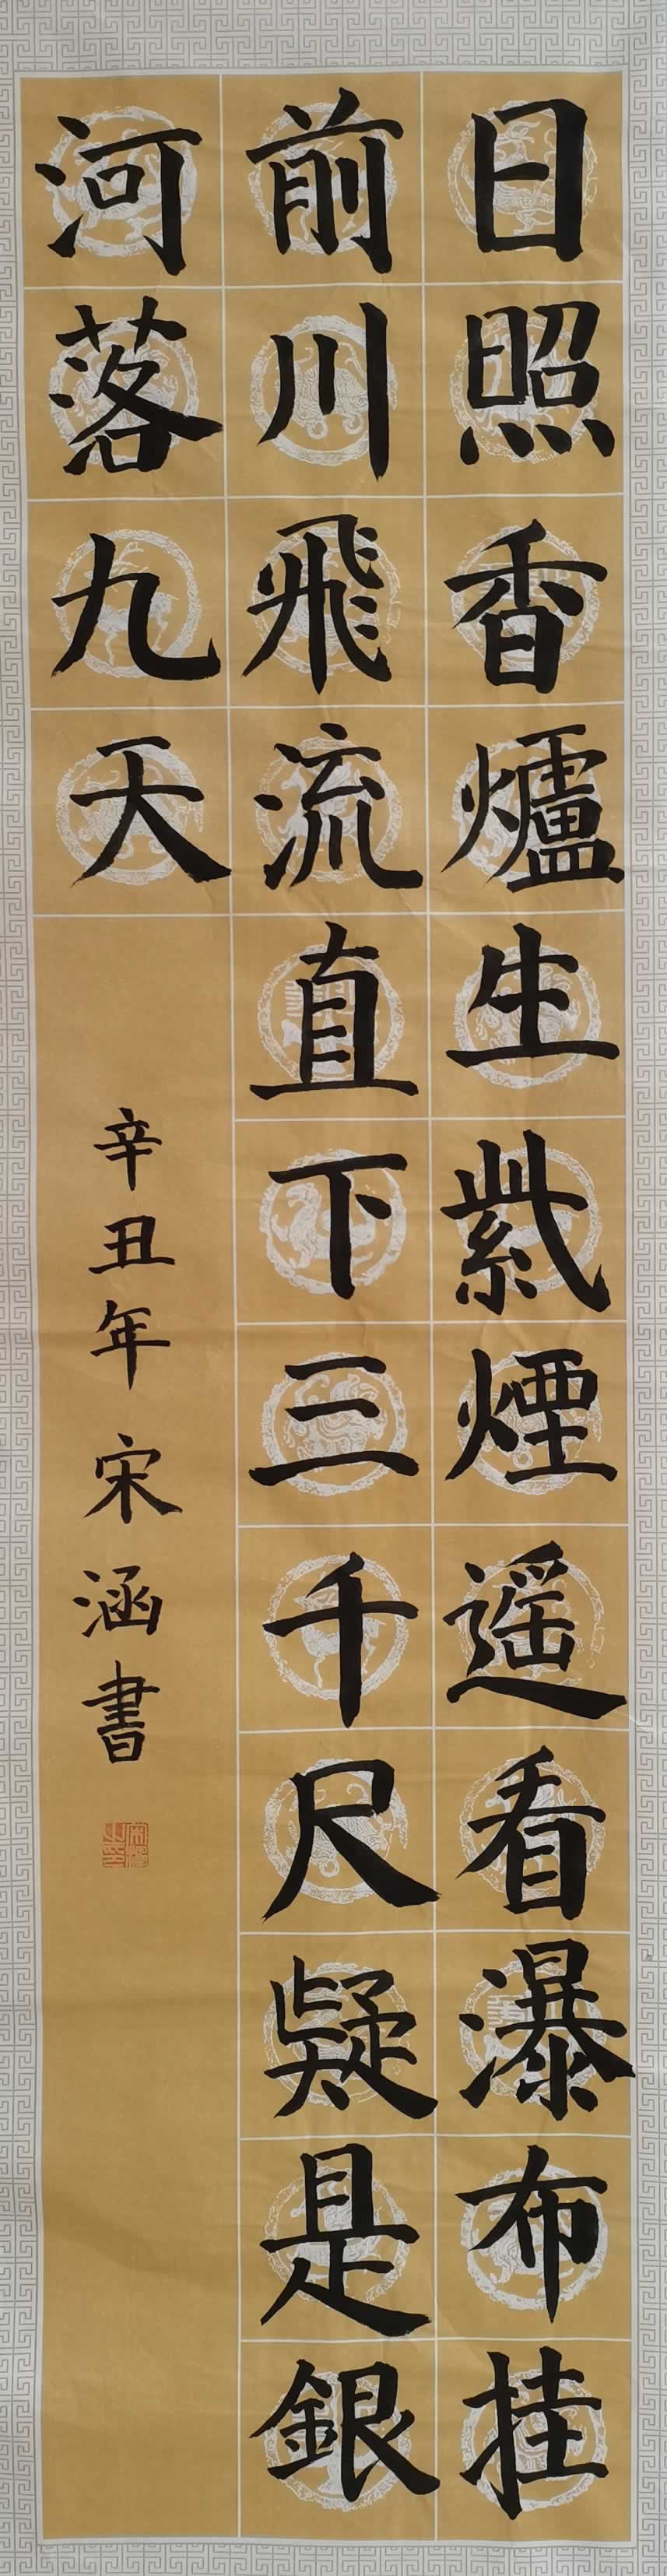 日照香爐生紫煙遥看瀑布挂
前川飛流直下三千尺疑是銀
河落九天
辛丑年宋涵書